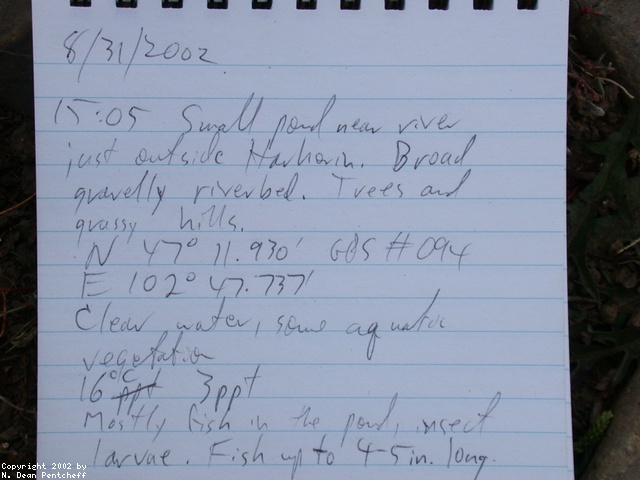 8/31/2002
15:05 Small pond near river
just outside Harhorin. Broad
gravelly riverbed. Trees and
grassy hills.
N 47° 11.930' GPS #094
E 102° 47.737'
Clear water, some aquatic
vegetation
16°C ppt 3ppt
Mostly fish in the pond, insect
larvae. Fish up to 4-5 in. long.
Copyright 2002 by
N. Dean Pentcheff